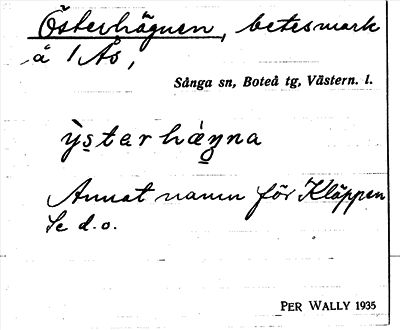 Österhägnen, betesmark
å 1 Ås,
Sånga sn, Boteå tg, Västern. l.
ỳsterhàŋna
Annat namn för Kläppen
Se d.o.
PER WALLY 1935